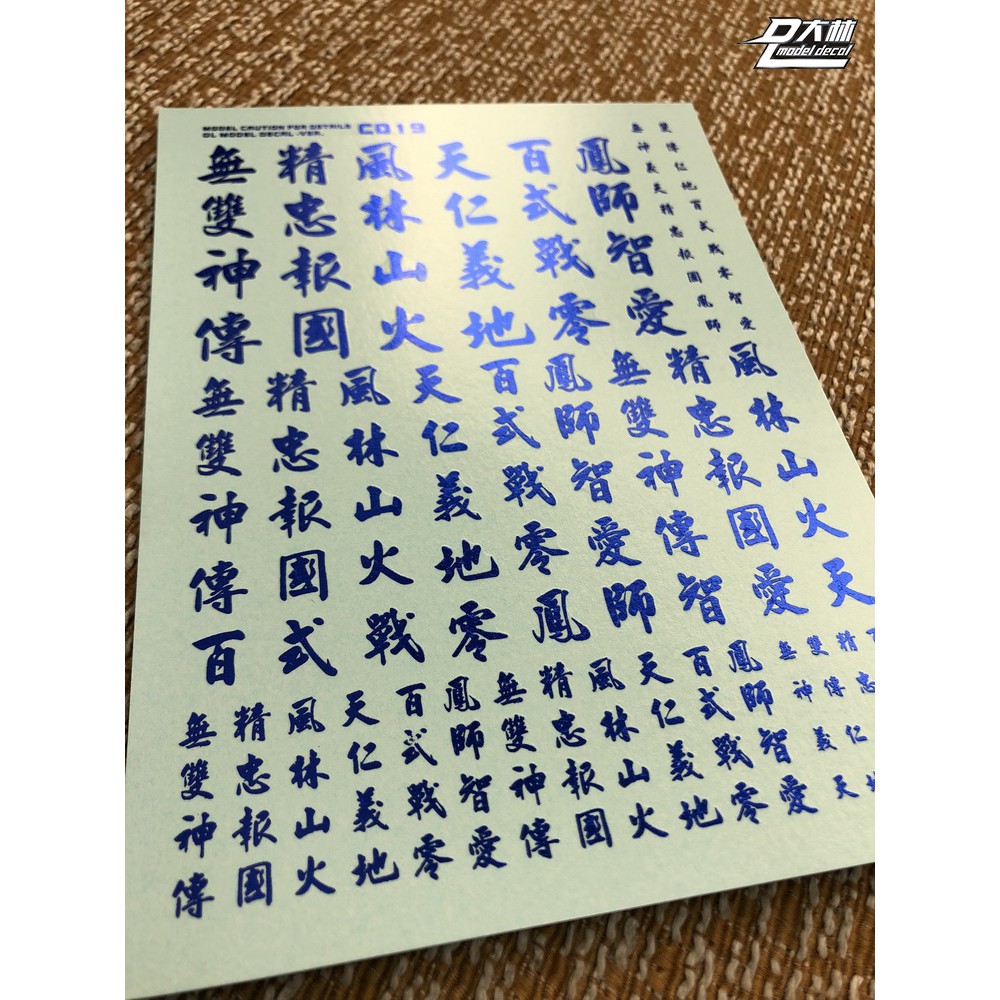 大林
model decal
MODEL CAUTION FOR DETAILS
DL MODEL DECAL -VER.
C019
無雙神傳
精忠報國
風林山火
天仁義地
百式戰零
鳳師智愛
無神義天精忠報國鳳師
雙傳仁地百式戰零智愛
無雙神傳
精忠報國
風林山火
天仁義地
百式戰零
鳳師智愛
無雙神傳
精忠報國
風林山火
百式戰零鳳師智愛天
無雙神傳
精忠報國
風林山火
天仁義地
百式戰零
鳳師智愛
無雙神傳
精忠報國
風林山火
天仁義地
百式戰零
鳳師智愛
無雙精
神傳忠
義仁
天